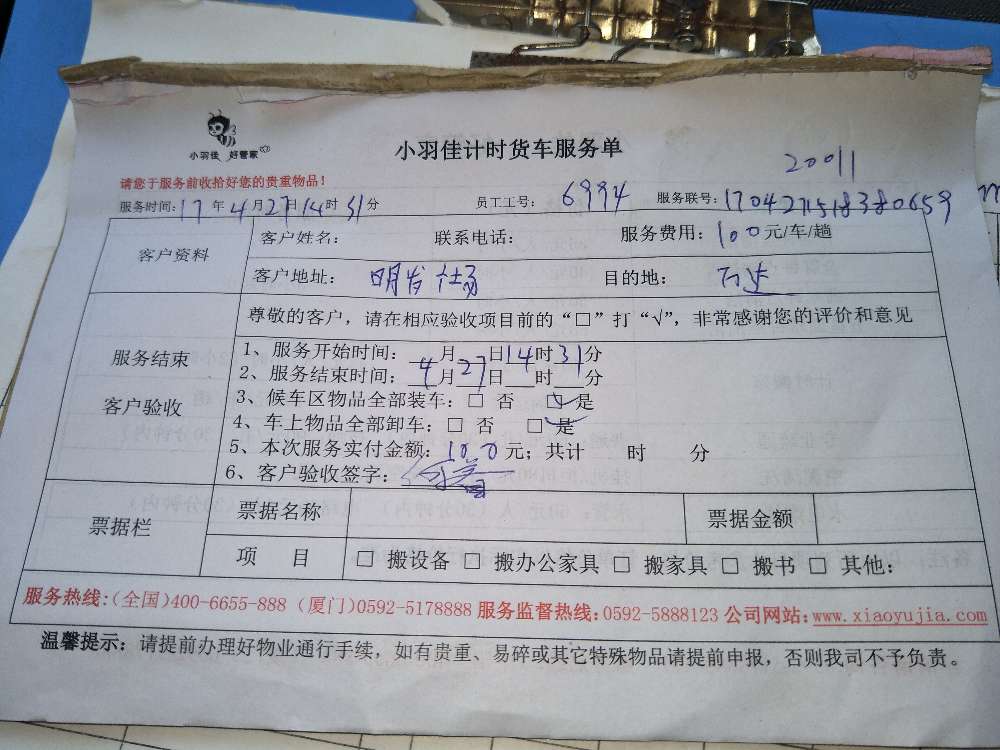 小羽佳 好管家
小羽佳计时货车服务单
20011
请您于服务前收拾好您的贵重物品！
服务时间：17年4月27日14时31分 员工工号：6994 服务联号：17042711518380659
客户资料 客户姓名： 联系电话： 服务费用：100元/车/趟
客户地址：明发 目的地：万达
尊敬的客户，请在相应验收项目前的“□”打“√”，非常感谢您的评价和意见
服务结束
客户验收
1、服务开始时间：4月27日14时31分
2、服务结束时间：___月___日___时___分
3、候车区物品全部装车：□ 否 ☑ 是
4、车上物品全部卸车：□ 否 ☑ 是
5、本次服务实付金额：100元；共计 时 分
6、客户验收签字：
票据栏 票据名称 票据金额
项 目 □ 搬设备 □ 搬办公家具 □ 搬家具 □ 搬书 □ 其他：
服务热线：(全国)400-6655-888 (厦门)0592-5178888 服务监督热线：0592-5888123 公司网站：www.xiaoyujia.com
温馨提示：请提前办理好物业通行手续，如有贵重、易碎或其它特殊物品请提前申报，否则我司不予负责。